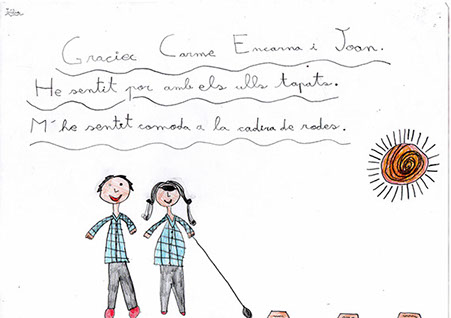 Isa
Gracies Carme Encarna i Joan.
He sentit por amb els ulls tapats.
M'he sentet comoda a la cadira de rodes.